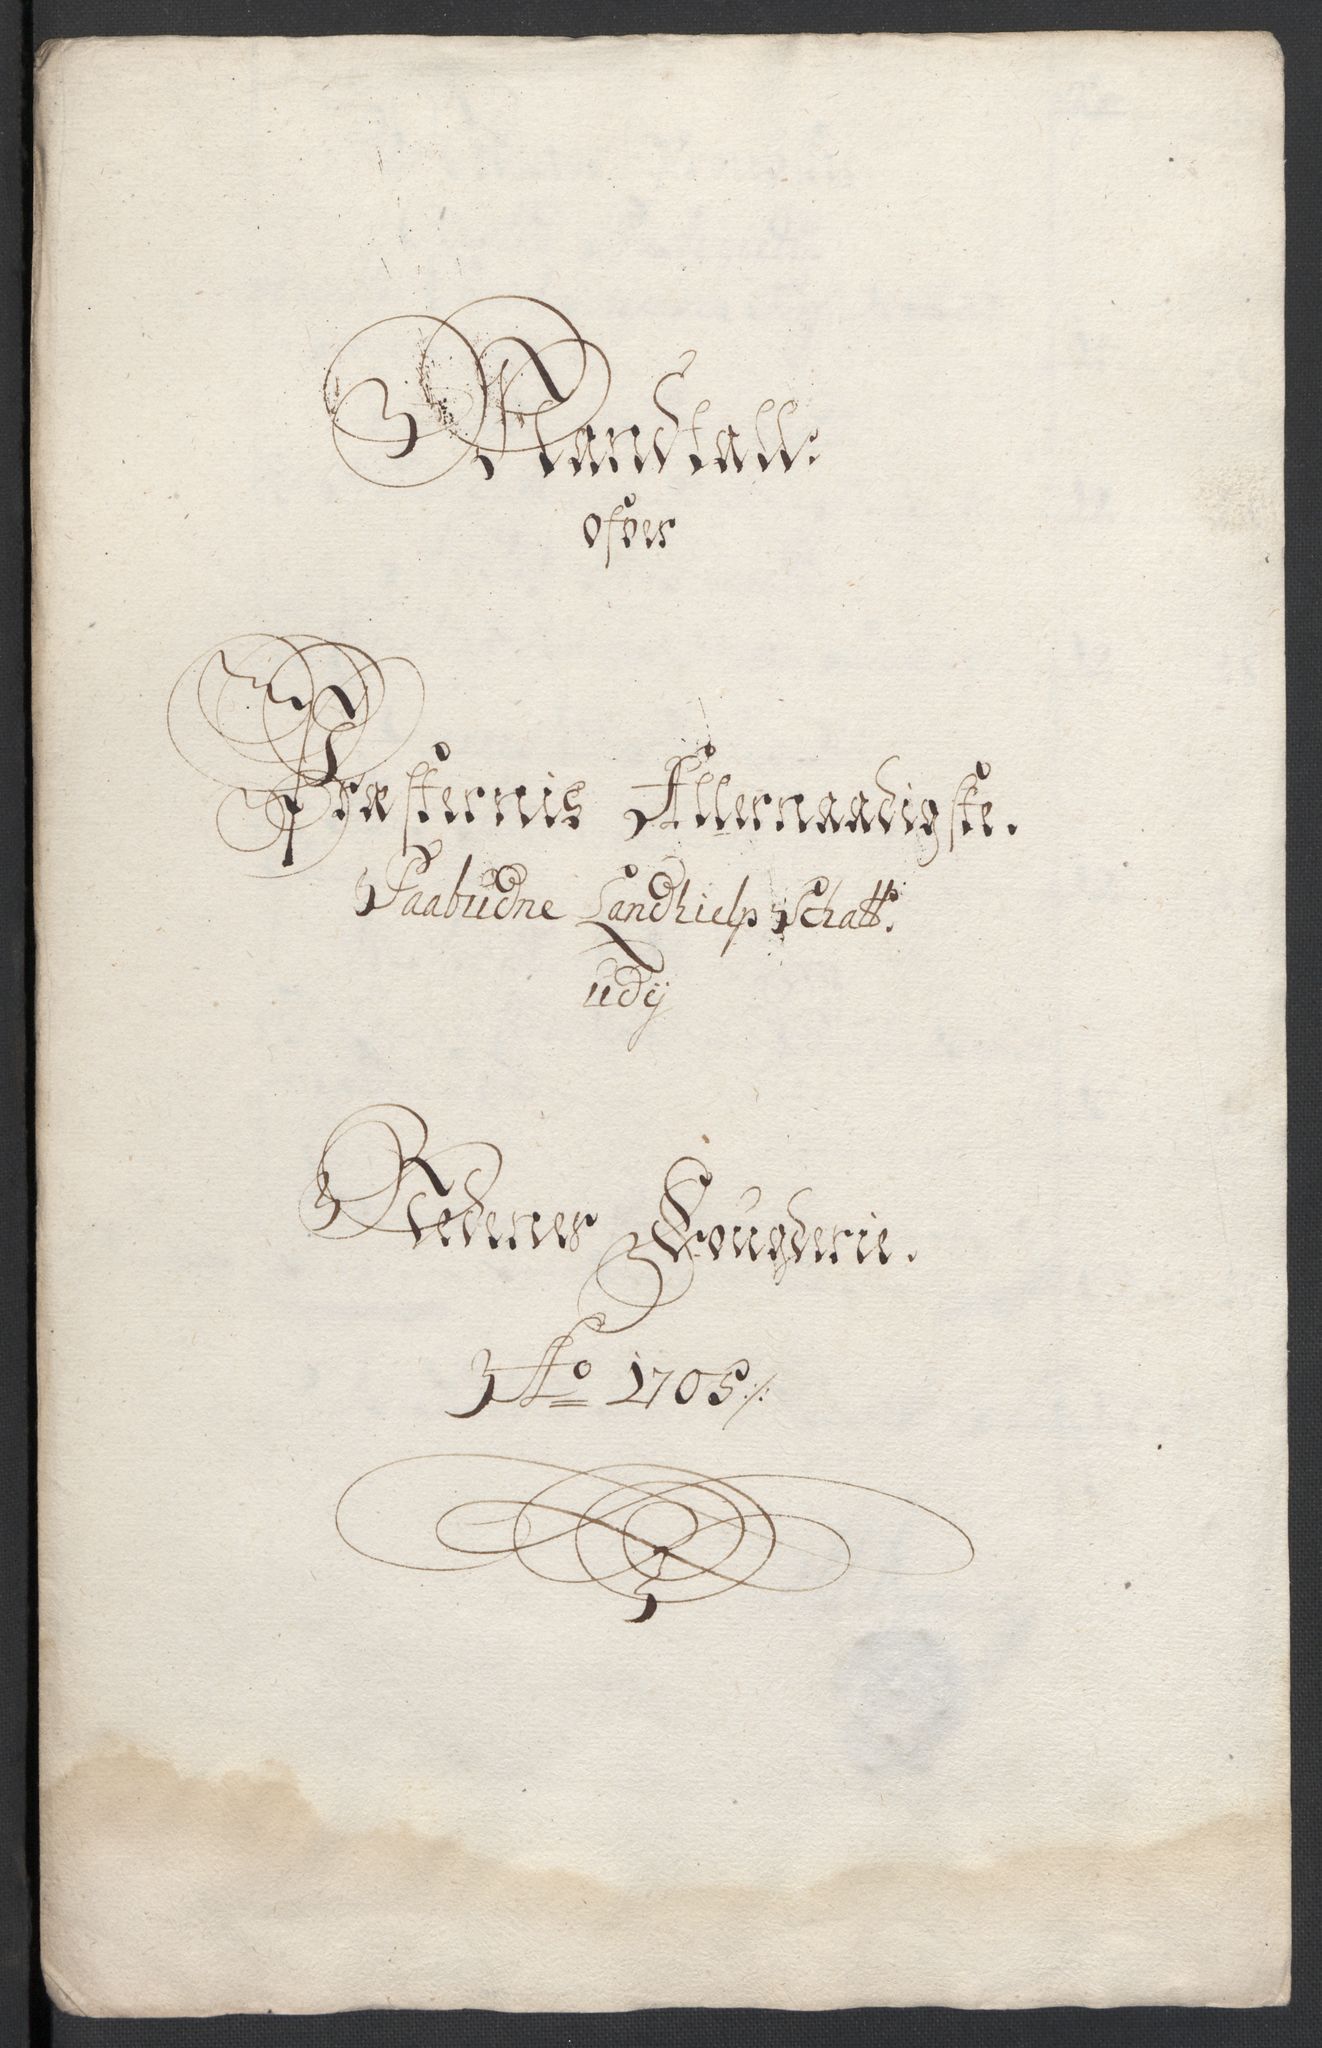 Mandtall:
ofver
Præsternis Allernaadigste.
Paabudne Landhielp Schatt.
udj
Nedenes Fougderie.
Ao 1705 ./.